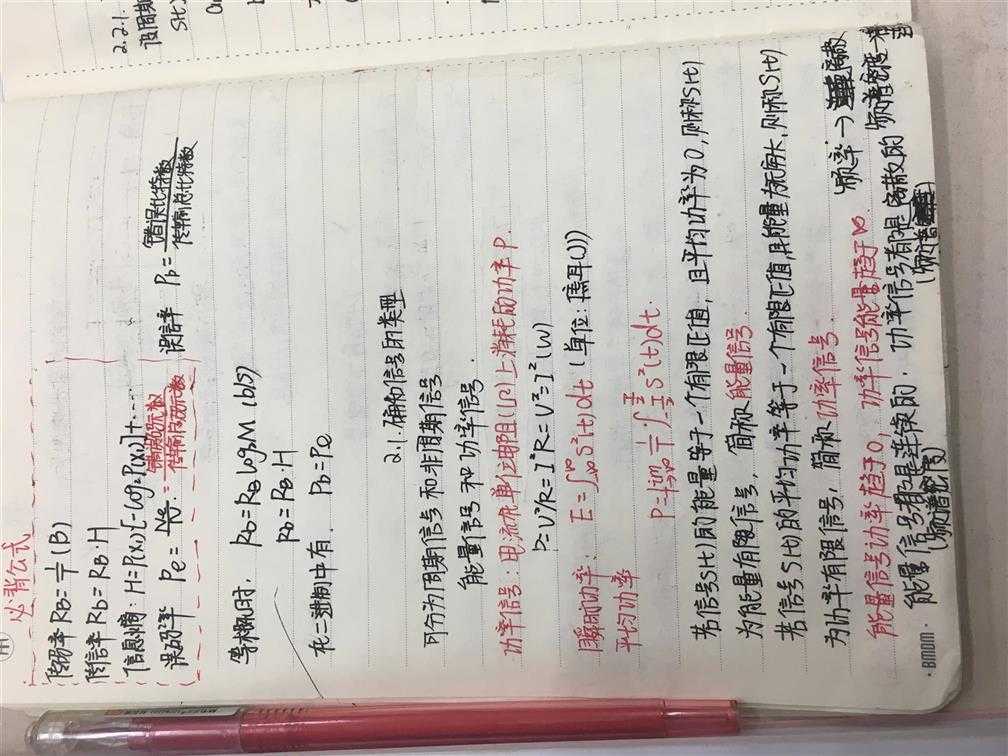 必背公式
传码率 RB = 1/T (B)
传信率 Rb = RB·H
信息熵: H = P(x₁)[-log₂P(x₁)] + …
误码率 Pe = Ne = 错误码元数/传输总码元数 误信率 Pb = 错误比特数/传输总比特数
等概时, Rb = RB log₂M (b/s)
Rb = RB·H
在二进制中有, Pb = Pe
2.1. 确知信号的类型
可分为周期信号和非周期信号
能量信号和功率信号.
功率信号: 电流在单位电阻(1Ω)上消耗的功率P.
P = V²/R = I²R = V² = I² (W)
瞬时功率: E = ∫₋∞^∞ S²(t)dt (单位: 焦耳(J))
平均功率 P = lim T→∞ 1/T ∫₋T/2^T/2 S²(t)dt.
若信号S(t)的能量等于一个有限正值, 且平均功率为0, 则称S(t)
为能量有限信号, 简称能量信号.
若信号S(t)的平均功率等于一个有限正值, 且能量为无穷大, 则称S(t)
为功率有限信号, 简称功率信号. 频率→
能量信号功率趋于0, 功率信号能量趋于∞.
能量信号都是连续的, 功率信号都是离散的
(频谱密度)
BMDM
2.2.1.
设周期
S(t)